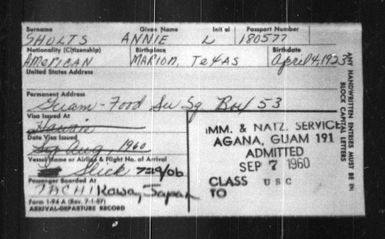 Surname Given Name Initial Passport Number
SHOLTS ANNIE L 180577
Nationality (Citizenship) Birthplace Birthdate
AMERICAN MARION, TEXAS April 4, 1923
United States Address
Permanent Address
Guam - Food Sv Sq Box 53
Visa Issued At
Hawaii
Date Visa Issued
Aug, 1960
Vessel Name or Airline & Flight No. of Arrival
Slick 729/06
Passenger Boarded At
TACHIKAWA, Japan
Form I-94 A (Rev. 7-1-57)
ARRIVAL-DEPARTURE RECORD
IMM. & NATZ. SERVICE
AGANA, GUAM 191
ADMITTED
SEP 7 1960
CLASS USC
TO
ANY HANDWRITTEN ENTRIES MUST BE IN
BLOCK CAPITAL LETTERS